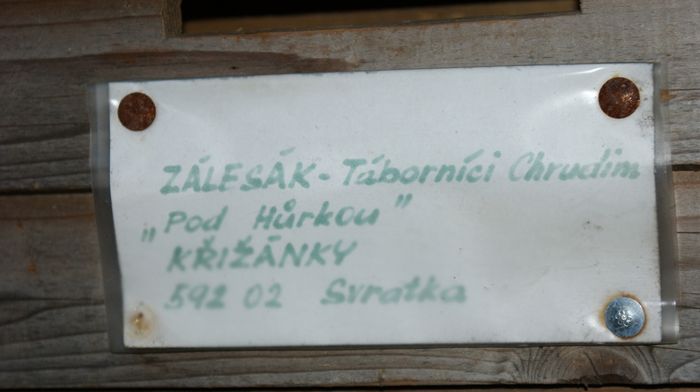 ZÁLESÁK - Táborníci Chrudim
„Pod Hůrkou"
KŘIŽÁNKY
592 02 Svratka